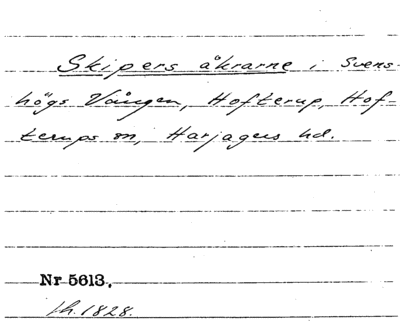 Skipers åkrarne i Svens-
högs Vången, Hofterup, Hof-
terups sn, Harjagers hd.
Nr 5613.
th. 1828.